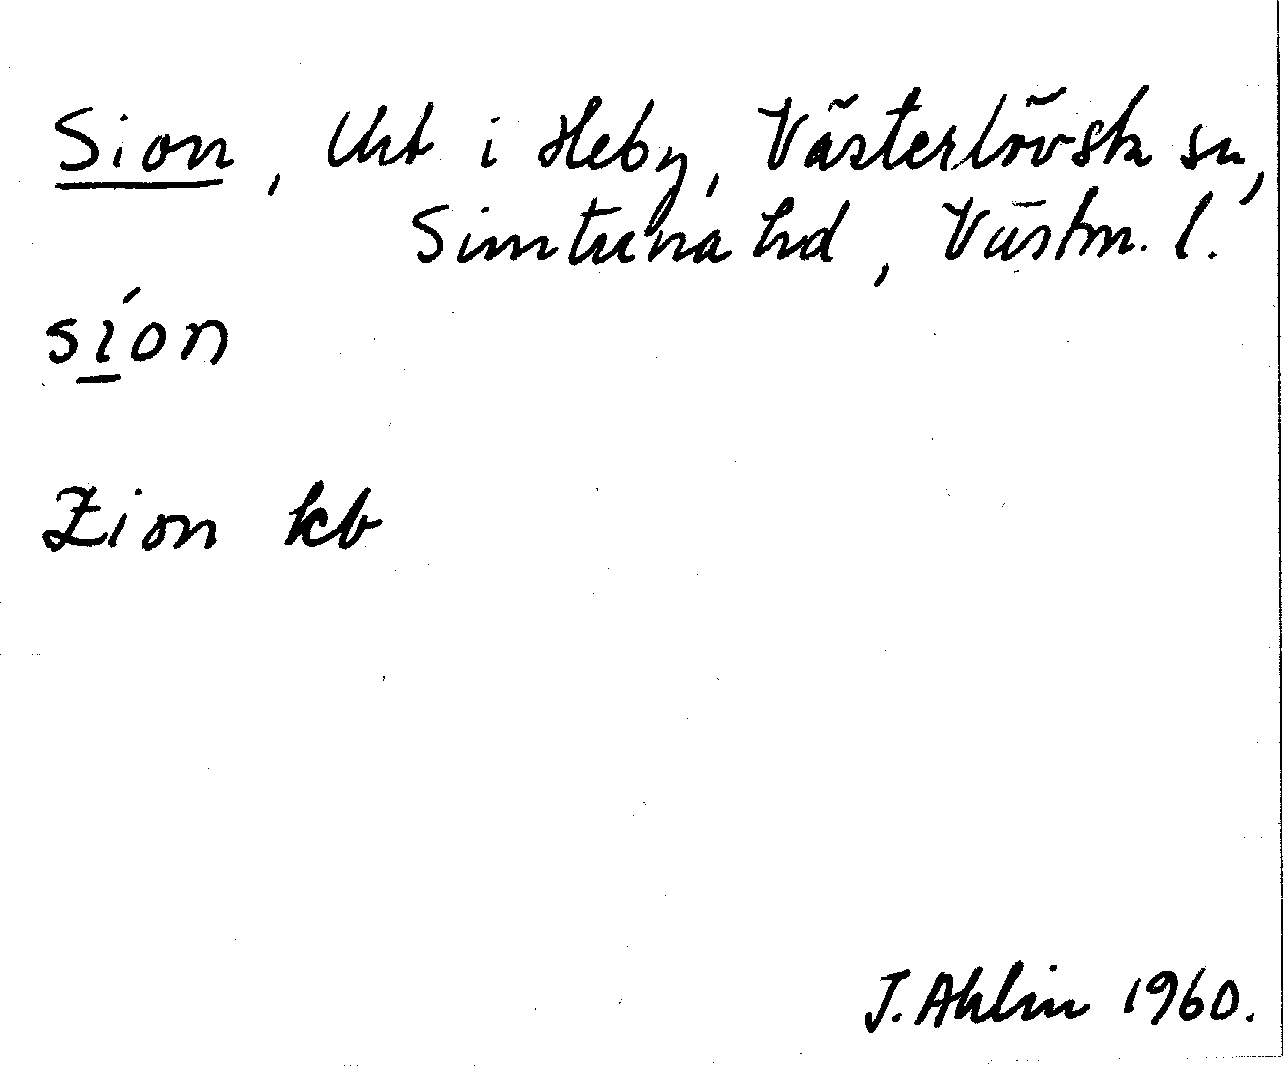 Sion, Utt i Heby, Västerlövsta sn,
Simtuna hd, Västm. l.
síon
Zion kb
J. Ahlin 1960.